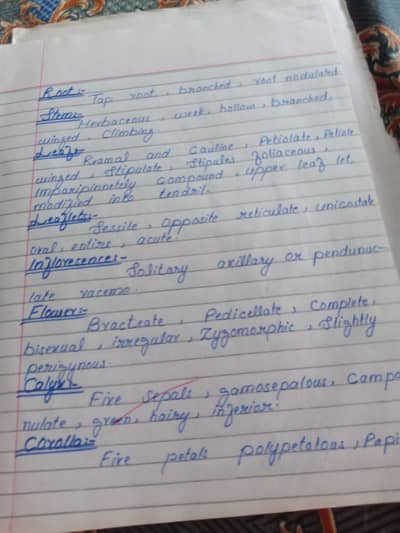 Root:-
Tap root, branched, root nodulated.
Stem:-
Herbaceous, week, hollow, branched,
winged climbing.
Leaf:-
Ramal and Cauline, Petiolate, Petiole
winged, Stipulate, Stipules foliaceous,
Imparipinnetely compound, upper leaf let
modified into tendril.
Leaflets:-
Sessite, opposite reticulate, unicostate
oval, entire, acute.
Inflorescences:-
Solitary axillary or pendunuc-
late raceme.
Flower:-
Bracteate, Pedicellate, Complete,
bisexual, irregular, Zygomorphic, Slightly
perigynous.
Calyx:-
Five Sepals, gamosepalous, Campa
nulate, green, hairy, inferior.
Corolla:-
Five petals polypetalous, Papi